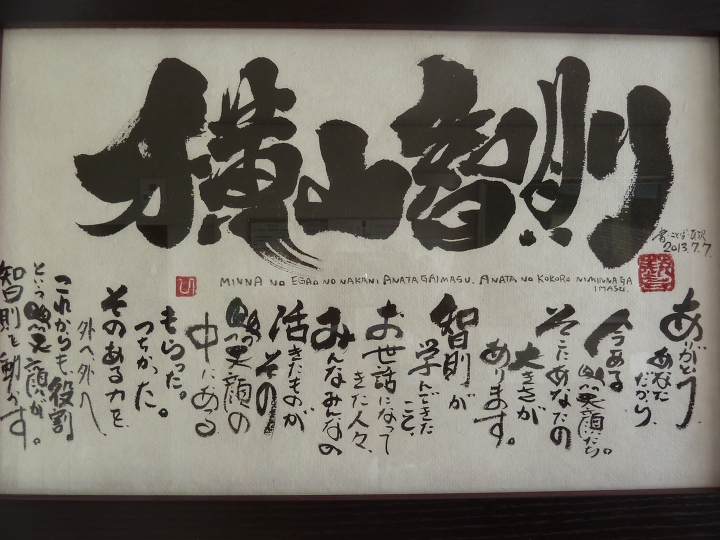 横山智則
2013.7.7.
MINNA NO EGAO NO NAKANI ANATA GA IMASU. ANATA NO KOKORO NI MINNA GA
IMASU.
ありがとう
あなた
だから。
今ある
笑顔たち。
そこにあなたの
大きさが
あります。
智則が
学んできた
こと、
お世話になって
きた人々、
みんなみんなの
活きたものが
その
笑顔の
中にある
もらった。
つちかった。
そのある力を
外へ外へ
これからも、役割
という笑顔が、
智則を動かす。